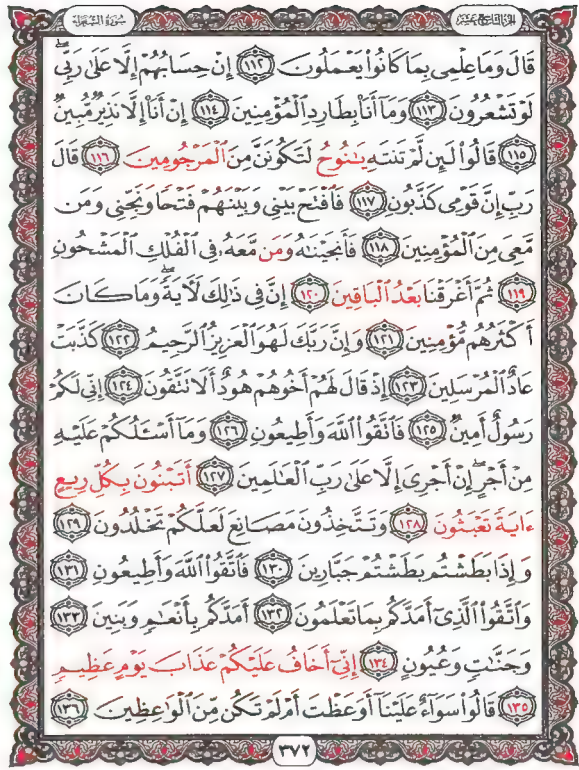 سُورَةُ الشُّعَرَاءِ الجُزْءُ التَّاسِعَ عَشَرَ
قَالَ وَمَا عِلْمِى بِمَا كَانُوا۟ يَعْمَلُونَ ۝١١٢ إِنْ حِسَابُهُمْ إِلَّا عَلَىٰ رَبِّىۖ
لَوْ تَشْعُرُونَ ۝١١٣ وَمَآ أَنَا۠ بِطَارِدِ ٱلْمُؤْمِنِينَ ۝١١٤ إِنْ أَنَا۠ إِلَّا نَذِيرٌ مُّبِينٌ
۝١١٥ قَالُوا۟ لَئِن لَّمْ تَنتَهِ يَـٰنُوحُ لَتَكُونَنَّ مِنَ ٱلْمَرْجُومِينَ ۝١١٦ قَالَ
رَبِّ إِنَّ قَوْمِى كَذَّبُونِ ۝١١٧ فَٱفْتَحْ بَيْنِى وَبَيْنَهُمْ فَتْحًا وَنَجِّنِى وَمَن
مَّعِىَ مِنَ ٱلْمُؤْمِنِينَ ۝١١٨ فَأَنجَيْنَـٰهُ وَمَن مَّعَهُۥ فِى ٱلْفُلْكِ ٱلْمَشْحُونِ
۝١١٩ ثُمَّ أَغْرَقْنَا بَعْدُ ٱلْبَاقِينَ ۝١٢٠ إِنَّ فِى ذَٰلِكَ لَـَٔايَةًۖ وَمَا كَانَ
أَكْثَرُهُم مُّؤْمِنِينَ ۝١٢١ وَإِنَّ رَبَّكَ لَهُوَ ٱلْعَزِيزُ ٱلرَّحِيمُ ۝١٢٢ كَذَّبَتْ
عَادٌ ٱلْمُرْسَلِينَ ۝١٢٣ إِذْ قَالَ لَهُمْ أَخُوهُمْ هُودٌ أَلَا تَتَّقُونَ ۝١٢٤ إِنِّى لَكُمْ
رَسُولٌ أَمِينٌ ۝١٢٥ فَٱتَّقُوا۟ ٱللَّهَ وَأَطِيعُونِ ۝١٢٦ وَمَآ أَسْـَٔلُكُمْ عَلَيْهِ
مِنْ أَجْرٍۖ إِنْ أَجْرِىَ إِلَّا عَلَىٰ رَبِّ ٱلْعَـٰلَمِينَ ۝١٢٧ أَتَبْنُونَ بِكُلِّ رِيعٍ
ءَايَةً تَعْبَثُونَ ۝١٢٨ وَتَتَّخِذُونَ مَصَانِعَ لَعَلَّكُمْ تَخْلُدُونَ ۝١٢٩
وَإِذَا بَطَشْتُم بَطَشْتُمْ جَبَّارِينَ ۝١٣٠ فَٱتَّقُوا۟ ٱللَّهَ وَأَطِيعُونِ ۝١٣١
وَٱتَّقُوا۟ ٱلَّذِىٓ أَمَدَّكُم بِمَا تَعْلَمُونَ ۝١٣٢ أَمَدَّكُم بِأَنْعَـٰمٍ وَبَنِينَ ۝١٣٣
وَجَنَّـٰتٍ وَعُيُونٍ ۝١٣٤ إِنِّىٓ أَخَافُ عَلَيْكُمْ عَذَابَ يَوْمٍ عَظِيمٍ
۝١٣٥ قَالُوا۟ سَوَآءٌ عَلَيْنَآ أَوَعَظْتَ أَمْ لَمْ تَكُن مِّنَ ٱلْوَٰعِظِينَ ۝١٣٦
٣٧٢